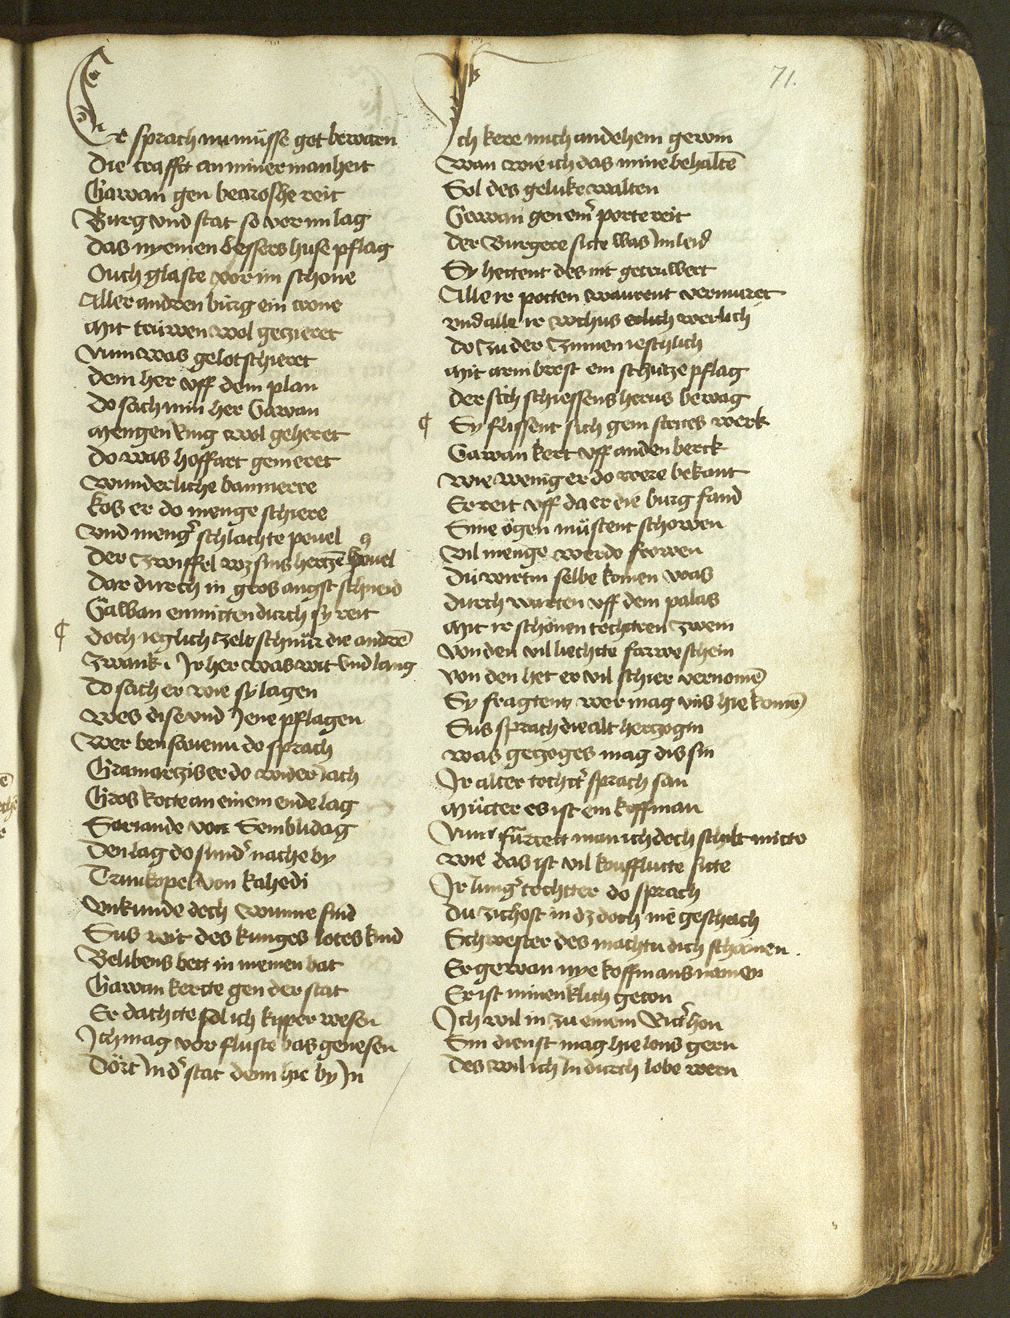 71.
Er sprach nu müsse got bewaren
Die crafft an miner manheit
Gawan gen bearoshe reit
Burg vnd stat so vor im lag
Das nyemen bessers huse pflag
Ouch glaste vor im schone
Aller andren bürg ein crone
Mit türnen wol gezieret
Nun was gelotschieret
Dem her vff dem plan
Do sach min her Gawan
Mengen Ring wol geheret
Do was hoffart gemeret
Wunderliche bannierre
Kos er do menge schiere
Vnd meng' schlachte pouel
Der Zwiffel wz sins hertzē houel
Dar durch in gros angst schneid
Gawan enmitten durch sy reit
Doch ieglich zelt schnür die andrē
Zwank. Jr her was wit vnd lang
Do sach er wie sy lagen
Wes dise vnd Jene pflagen
Wer ben sauenu do sprach
Gramarczis er do wider iach
Gros Rotte an einem ende lag
Sariande von Semblidag
Den lag do sund' nache by
Turkopel von kahedi
Vnkunde doch Wunne sind
Sus reit des kunges lotes kind
Belibens bett in niemen bat
Gawan kerte gen der stat
Er dachte sol ich kipper wesen
Jch mag vor fluste bas genesen
Dört Jn d' stat denn hie by Jn
Jch kere mich an dehein gewin
Wan wie ich das mine behaltē
Sol des geluke walten
Gawan gen ein' porte reit
Der Burgere sitte was Jm leid
Sy hettent des nit getruwert
Alle ir porten waurent vermuret
Vnd alle ir wichus erlich werlich
Do zu der Zinnen ieglich
Mit arm brost ein schutze pflag
Der sich schiessens herus bewag
Sy flissent sich gein strites werk
Gawan kert vff an den berck
Wie wenig er do were bekant
Er reit vff da er die burg fand
Sine ögen müstent schowen
Vil menge werdo frowen
Dü wirtin selbe komen was
Durch warten vff dem palas
Mit ir schönen tochteren zwein
Von den vil liechtte farwe schein
Von den het er vil schier vernomē
Sy fragten wer mag vns hie komē
Sus sprach die alt hertzogin
Was gezoges mag dis sin
Jr alter tocht' sprach san
Mütter es ist ein koffman
Nun fürrett man ich doch schilt mitte
Wie das ist vil koufflutte sitte
Jr Jung' tochtter do sprach
Du zichost in dz doch nie geschach
Schwester des machtu dich schamen.
Er gewan nye koffmans namen
Er ist minenklich geton
Jch wil in zu einem Ritt' hon
Sin dienst mag hie lons gern
Des wil ich Jn durch lobe wern